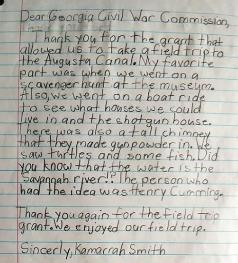 Dear Georgia Civil War Commission,
Thank you for the grant that
allowed us to take a field trip to
the Augusta Canal. My favorite
part was when we went on a
scavenger hunt at the museum.
Also, we went on a boat ride
to see what houses we could
live in and the shotgun house.
There was also a tall chimney
that they made gunpowder in. We
saw turtles and some fish. Did
you know that the water is the
Savannah river!! The person who
had the idea was Henry Cumming.
Thank you again for the field trip
grant. We enjoyed our field trip.
Sincerely, Kamarrah Smith